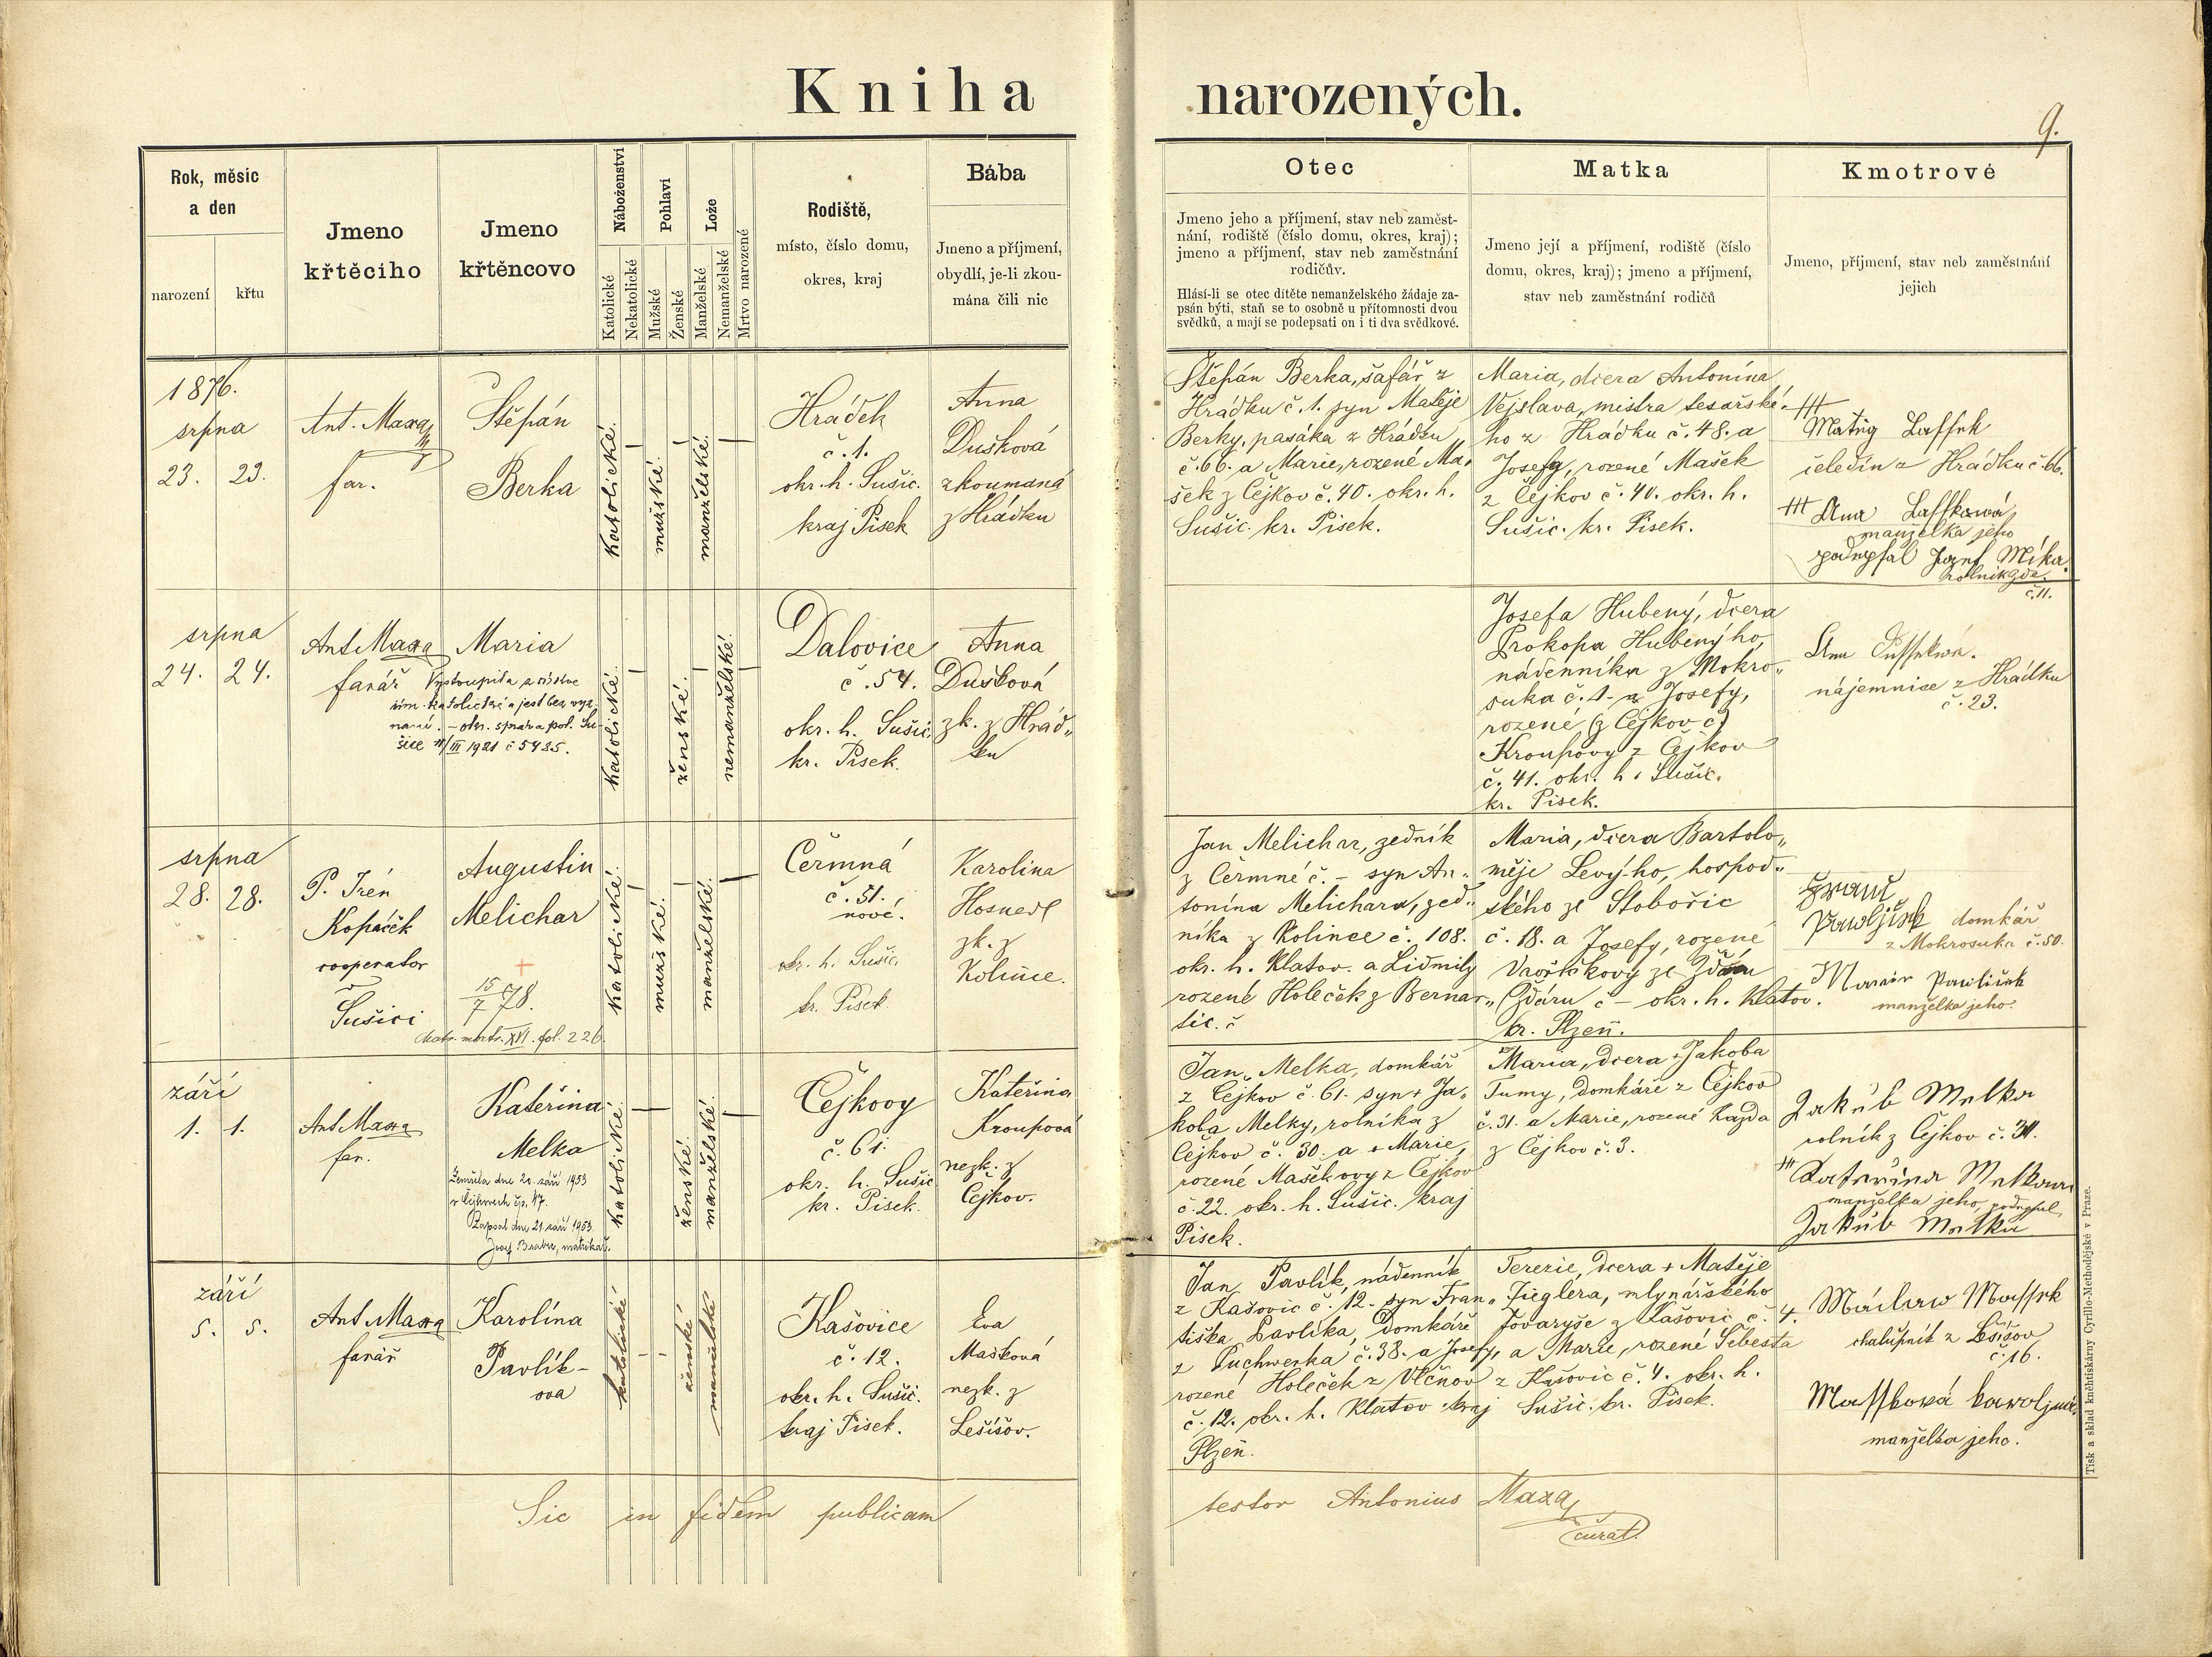 Kniha narozených.
9.
Rok, měsíc
a den
narození
křtu
Jmeno
křtěcího
Jmeno
křtěncovo
Náboženství
Katolické
Nekatolické
Pohlaví
Mužské
Ženské
Lože
Manželské
Nemanželské
Mrtvo narozené
Rodiště,
místo, číslo domu,
okres, kraj
Bába
Jmeno a příjmení,
obydlí, je-li zkou-
mána čili nic
Otec
Jmeno jeho a příjmení, stav neb zaměst-
nání, rodiště (číslo domu, okres, kraj);
jmeno a příjmení, stav neb zaměstnání
rodičův.
Hlásí-li se otec dítěte nemanželského žádaje za-
psán býti, staň se to osobně u přítomnosti dvou
svědků, a mají se podepsati on i ti dva svědkové.
Matka
Jmeno její a příjmení, rodiště (číslo
domu, okres, kraj); jmeno a příjmení,
stav neb zaměstnání rodičů
Kmotrové
Jmeno, příjmení, stav neb zaměstnání
jejich
1876.
srpna
23. 23.
Ant. Maxa
far.
Štěpán
Berka
katolické.
mužské.
manželské.
Hrádek
č. 1.
okr. h. Sušic.
kraj Písek
Anna
Dušková
zkoumaná
z Hrádku
Štěpán Berka, šafář z
Hrádku č. 1. syn Matěje
Berky, pasáka z Hrádku
č. 66. a Marie, rozené Ma-
šek z Čejkov č. 40. okr. h.
Sušic. kr. Písek.
Maria, dcera Antonína
Vejslava, mistra tesařské-
ho z Hrádku č. 48. a
Josefy, rozené Mašek
z Čejkov č. 40. okr. h.
Sušic. kr. Písek.
+++
Matěg Laffek
čeledín z Hrádku č. 66.
+++ Ana Laffkowá
manželka jeho
podepsal Jozef Míka
rolník zde
č. 11.
srpna
24. 24.
Ant Maxa
farář
Maria
Vystoupila z církve
řím. katolické a jest bez vyz-
nání. - okr. správa pol. Su-
šice 11/III 1921 č 5425.
katolické.
ženské.
nemanželské.
Dalovice
č. 54.
okr. h. Sušic.
kr. Písek.
Anna
Dušková
zk. z Hrád„
ku
Josefa Hubený, dcera
Prokopa Hubenýho,
nádenníka z Mokro„
suka č. 1. a Josefy,
rozené (z Čejkov č)
Kroupovy z Čejkov
č. 41. okr. h. Sušic.
kr. Písek.
Ana
nájemnice z Hrádku
č. 23.
srpna
28. 28.
P. Irén
Kopáček
cooperator
v
Sušici
Augustin
Melichar
+
15/7 78.
Matr. mort. XVI. fol. 226.
katolické.
mužské.
manželské.
Čermná
č. 31.
nové.
okr. h. Sušic.
kr. Písek
Karolina
Hosnedl
zk. z
Kolince.
Jan Melichar, zedník
z Čermné č. - syn An„
tonína Melichara, zed„
níka z Kolince č. 108.
okr. h. Klatov. a Lidmily
rozené Holeček z Bernar„
tic. č
Maria, dcera Bartolo„
měje Levý-ho, hospod„
ského ze Stobořic
č. 18. a Josefy, rozené
Vavřičkovy ze Žďáru
(Žďáru č - okr. h. Klatov.
kr. Plzeň.
Franc
Pawljček domkář
z Mokrosuka č. 50.
Marie Pawliček
manželka jeho.
září
1. 1.
Ant Maxa
far.
Kateřina
Melka
Zemřela dne 20. září 1953
v Čejkovech čp. 17.
Zapsal dne 21. září 1953.
Josef Brabec, matrikář.
katolické.
ženské.
manželské.
Čejkovy
č. 61.
okr. h. Sušic
kr. Písek.
Kateřina
Kroupová
nezk. z
Čejkov.
Jan Melka, domkář
z Čejkov č. 61. syn + Ja„
koba Melky, rolníka z
Čejkov č. 30. a + Marie,
rozené Maškovy z Čejkov
č. 22. okr. h. Sušic. kraj
Písek.
Maria, dcera + Jakoba
Tumy, domkáře z Čejkov
č. 31. a Marie, rozené Kazda
z Čejkov č. 3.
Jakub Melka
rolník z Čejkov č. 30.
+++ Kateřina Melkowa
manželka jeho, podepsal
Jakub Melka
září
5. 5.
Ant Maxa
farář
Karolína
Pavlík-
ova
katolické
ženské
manželské
Kašovice
č. 12.
okr. h. Sušic.
kraj Písek.
Eva
Mašková
nezk. z
Lešišov.
Jan Pavlík, nádenník
z Kašovic č. 12. syn Fran„
tiška Pavlíka, domkáře
z Puchwerka č. 38. a Josefy,
rozené Holeček z Vlčnov
č. 12. okr. h. Klatov kraj
Plzeň.
Terezie, dcera + Matěje
Zieglera, mlynářského
tovaryše z Kašovic č. 4.
a Marie, rozené Šebesta
z Kašovic č. 4. okr. h.
Sušic. kr. Písek.
Wáclaw Maffek
chalupník z Lešišov
č. 16.
Maffková karoljna
manželka jeho.
Sic in fidem publicam testor Antonius Maxa,
curat.
Tisk a sklad kněhtiskárny Cyrillo-Methodějské v Praze.